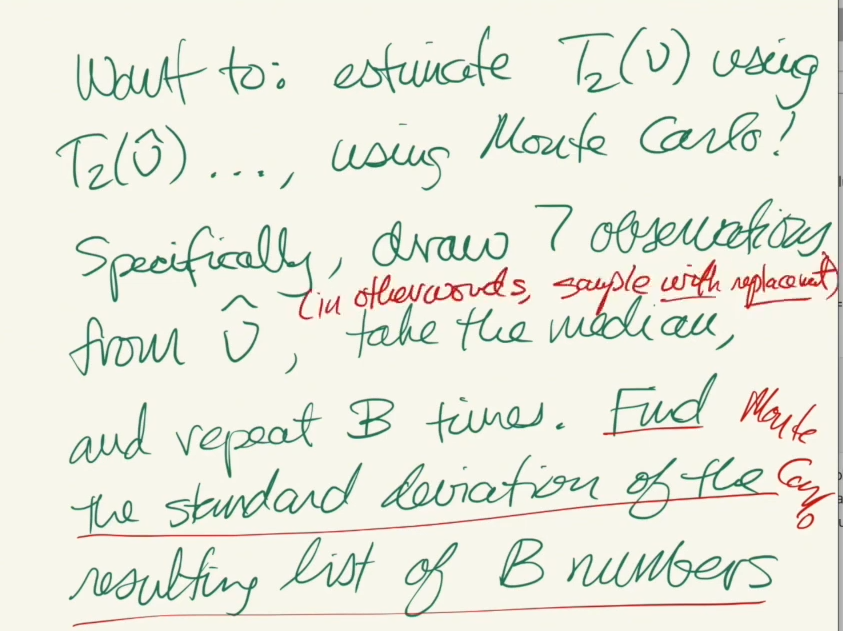 Want to: estimate T₂(υ) using
T₂(υ̂) ..., using Monte Carlo!
Specifically, draw 7 observations
(in other words, sample with replacement)
from υ̂, take the median,
and repeat B times. Find Monte
the standard deviation of the Carlo
resulting list of B numbers